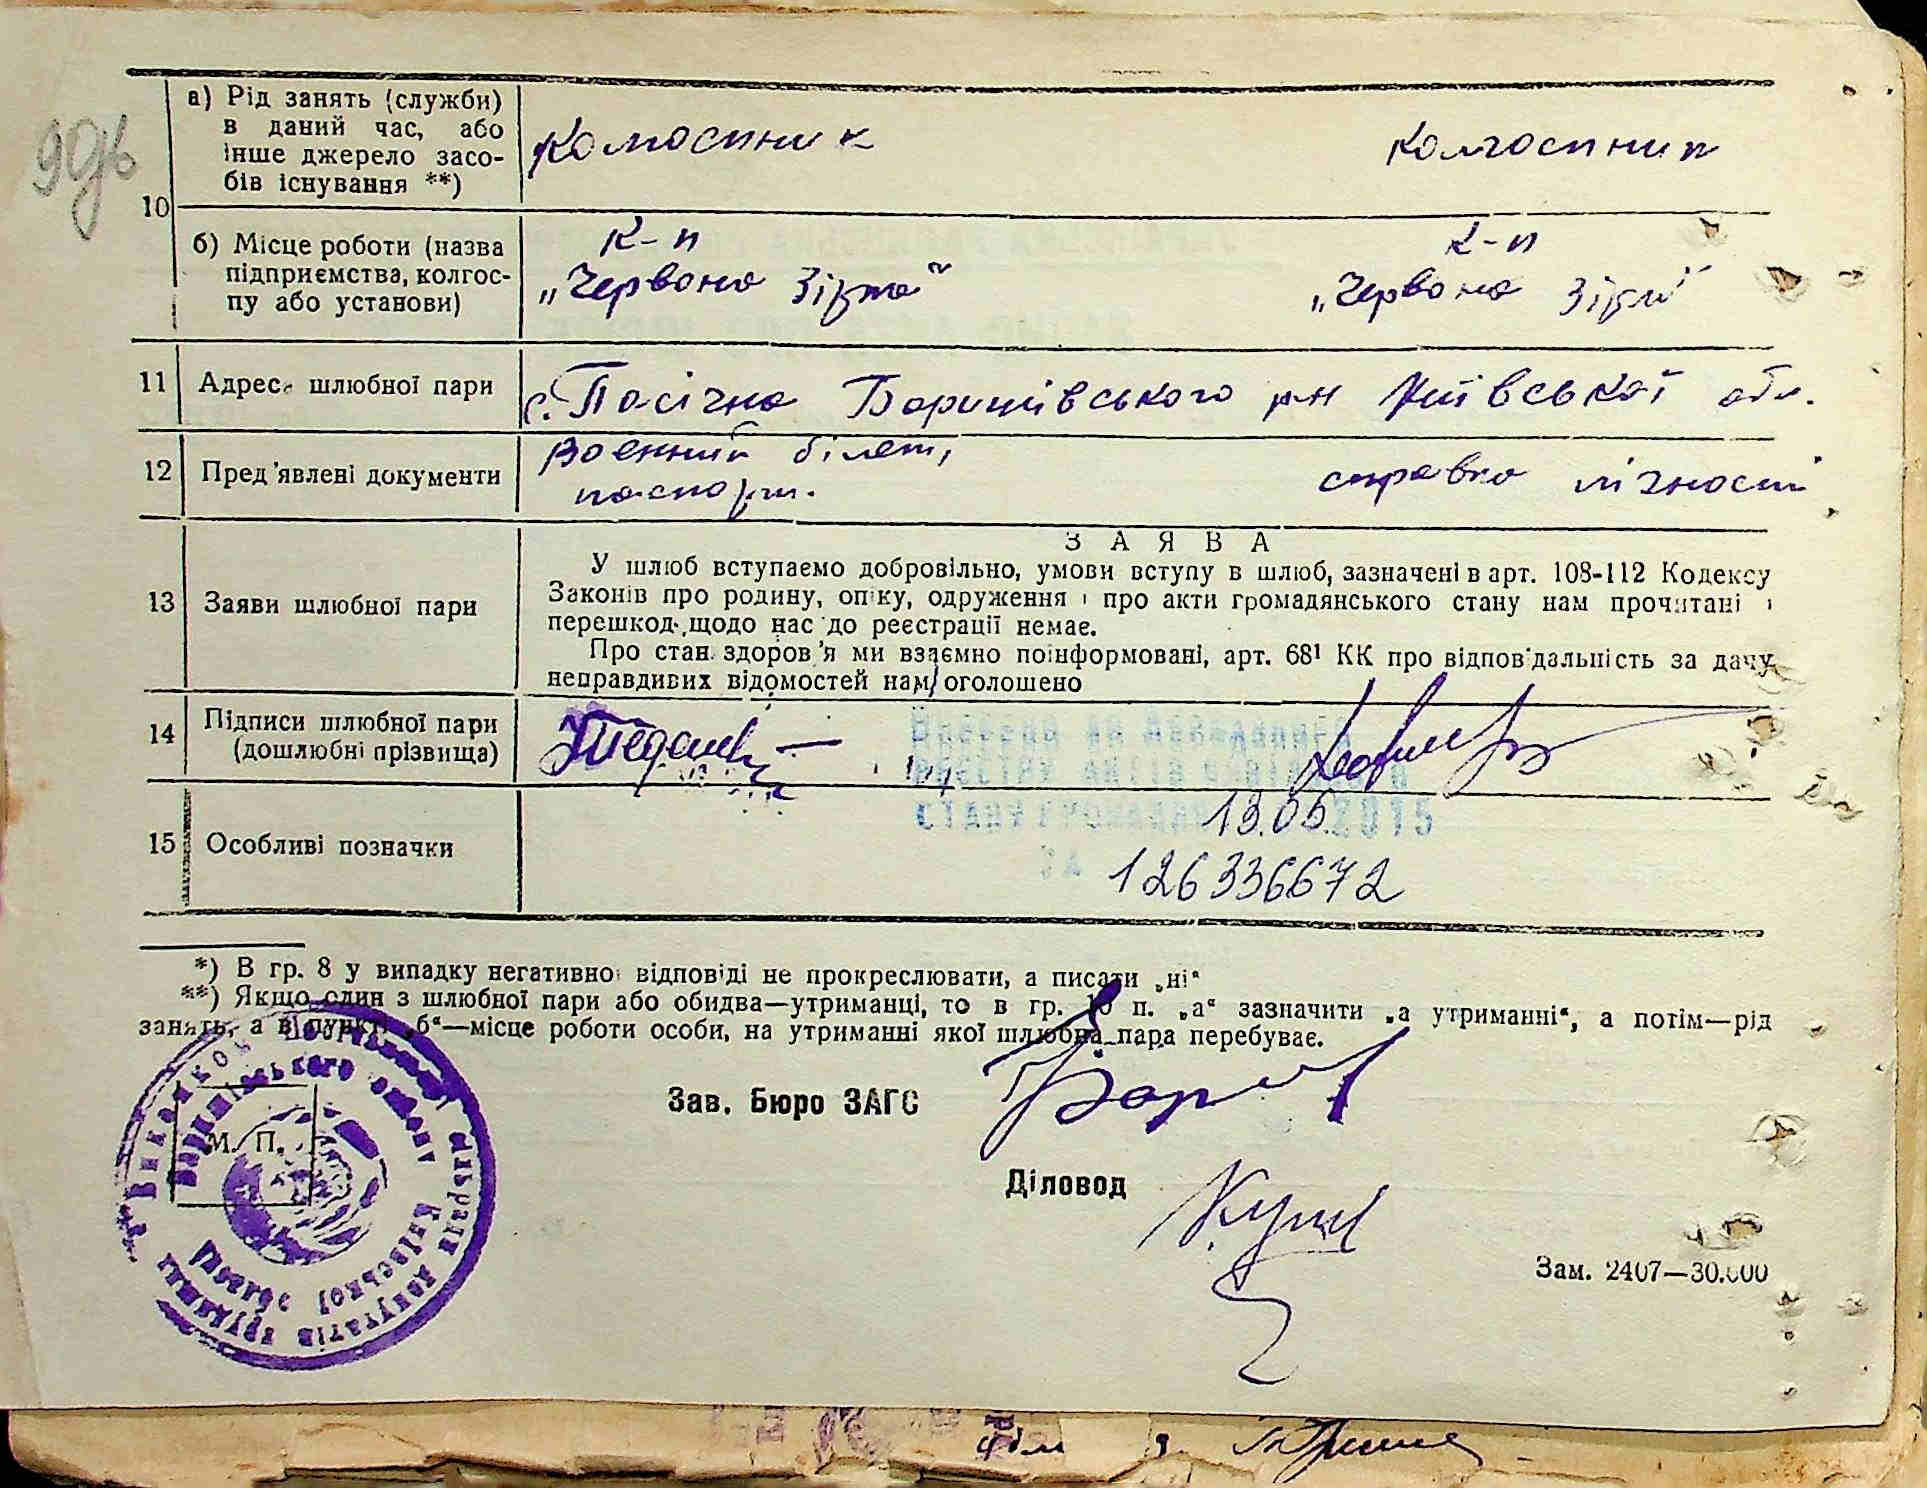 90зв
10
а) Рід занять (служби) в даний час, або інше джерело засобів існування **)
Колгоспник
Колгоспник
б) Місце роботи (назва підприємства, колгоспу або установи)
К-п
„Червона Зірка“
К-п
„Червона Зірка“
11 Адреса шлюбної пари
с. Пасічна Баришівського р-н Київської обл.
12 Пред'явлені документи
Воєнний білет,
паспорт.
справка лічності
З А Я В А
13 Заяви шлюбної пари
У шлюб вступаємо добровільно, умови вступу в шлюб, зазначені в арт. 108-112 Кодексу
Законів про родину, опіку, одруження і про акти громадянського стану нам прочитані і
перешкод щодо нас до реєстрації немає.
Про стан здоров'я ми взаємно поінформовані, арт. 68¹ КК про відповідальність за дачу
неправдивих відомостей нам оголошено
14 Підписи шлюбної пари
(дошлюбні прізвища)
Внесено до Державного
реєстру актів цивільного
стану громадян 13.05.2015
15 Особливі позначки
за 126336672
*) В гр. 8 у випадку негативної відповіді не прокреслювати, а писати „ні“
**) Якщо один з шлюбної пари або обидва—утриманці, то в гр. 10 п. „а“ зазначити „а утриманні“, а потім—рід
занять, а в пункті „б“—місце роботи особи, на утриманні якої шлюбна пара перебуває.
Зав. Бюро ЗАГС
М. П.
Виконком Баришівської районної ради депутатів трудящих
Баришівського району Київської
Діловод
Зам. 2407—30.000